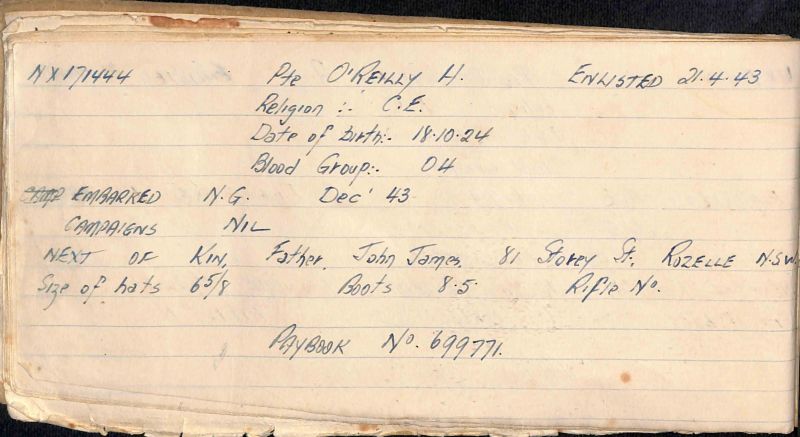 NX171444 Pte O'REILLY H. ENLISTED 21.4.43
Religion :- C.E.
Date of birth:- 18.10.24
Blood Group:- O4
EMBARKED N.G. Dec' 43
CAMPAIGNS NIL
NEXT OF KIN, Father, John James, 81 Storey St, ROZELLE N.S.W.
Size of hats 6 5/8 Boots 8.5 Rifle No.
PAYBOOK No. 699771.